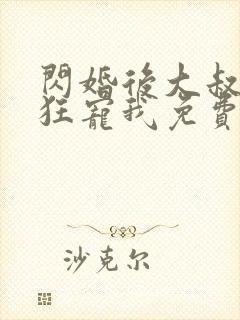 閃婚後大叔
狂寵我免費
沙克尔